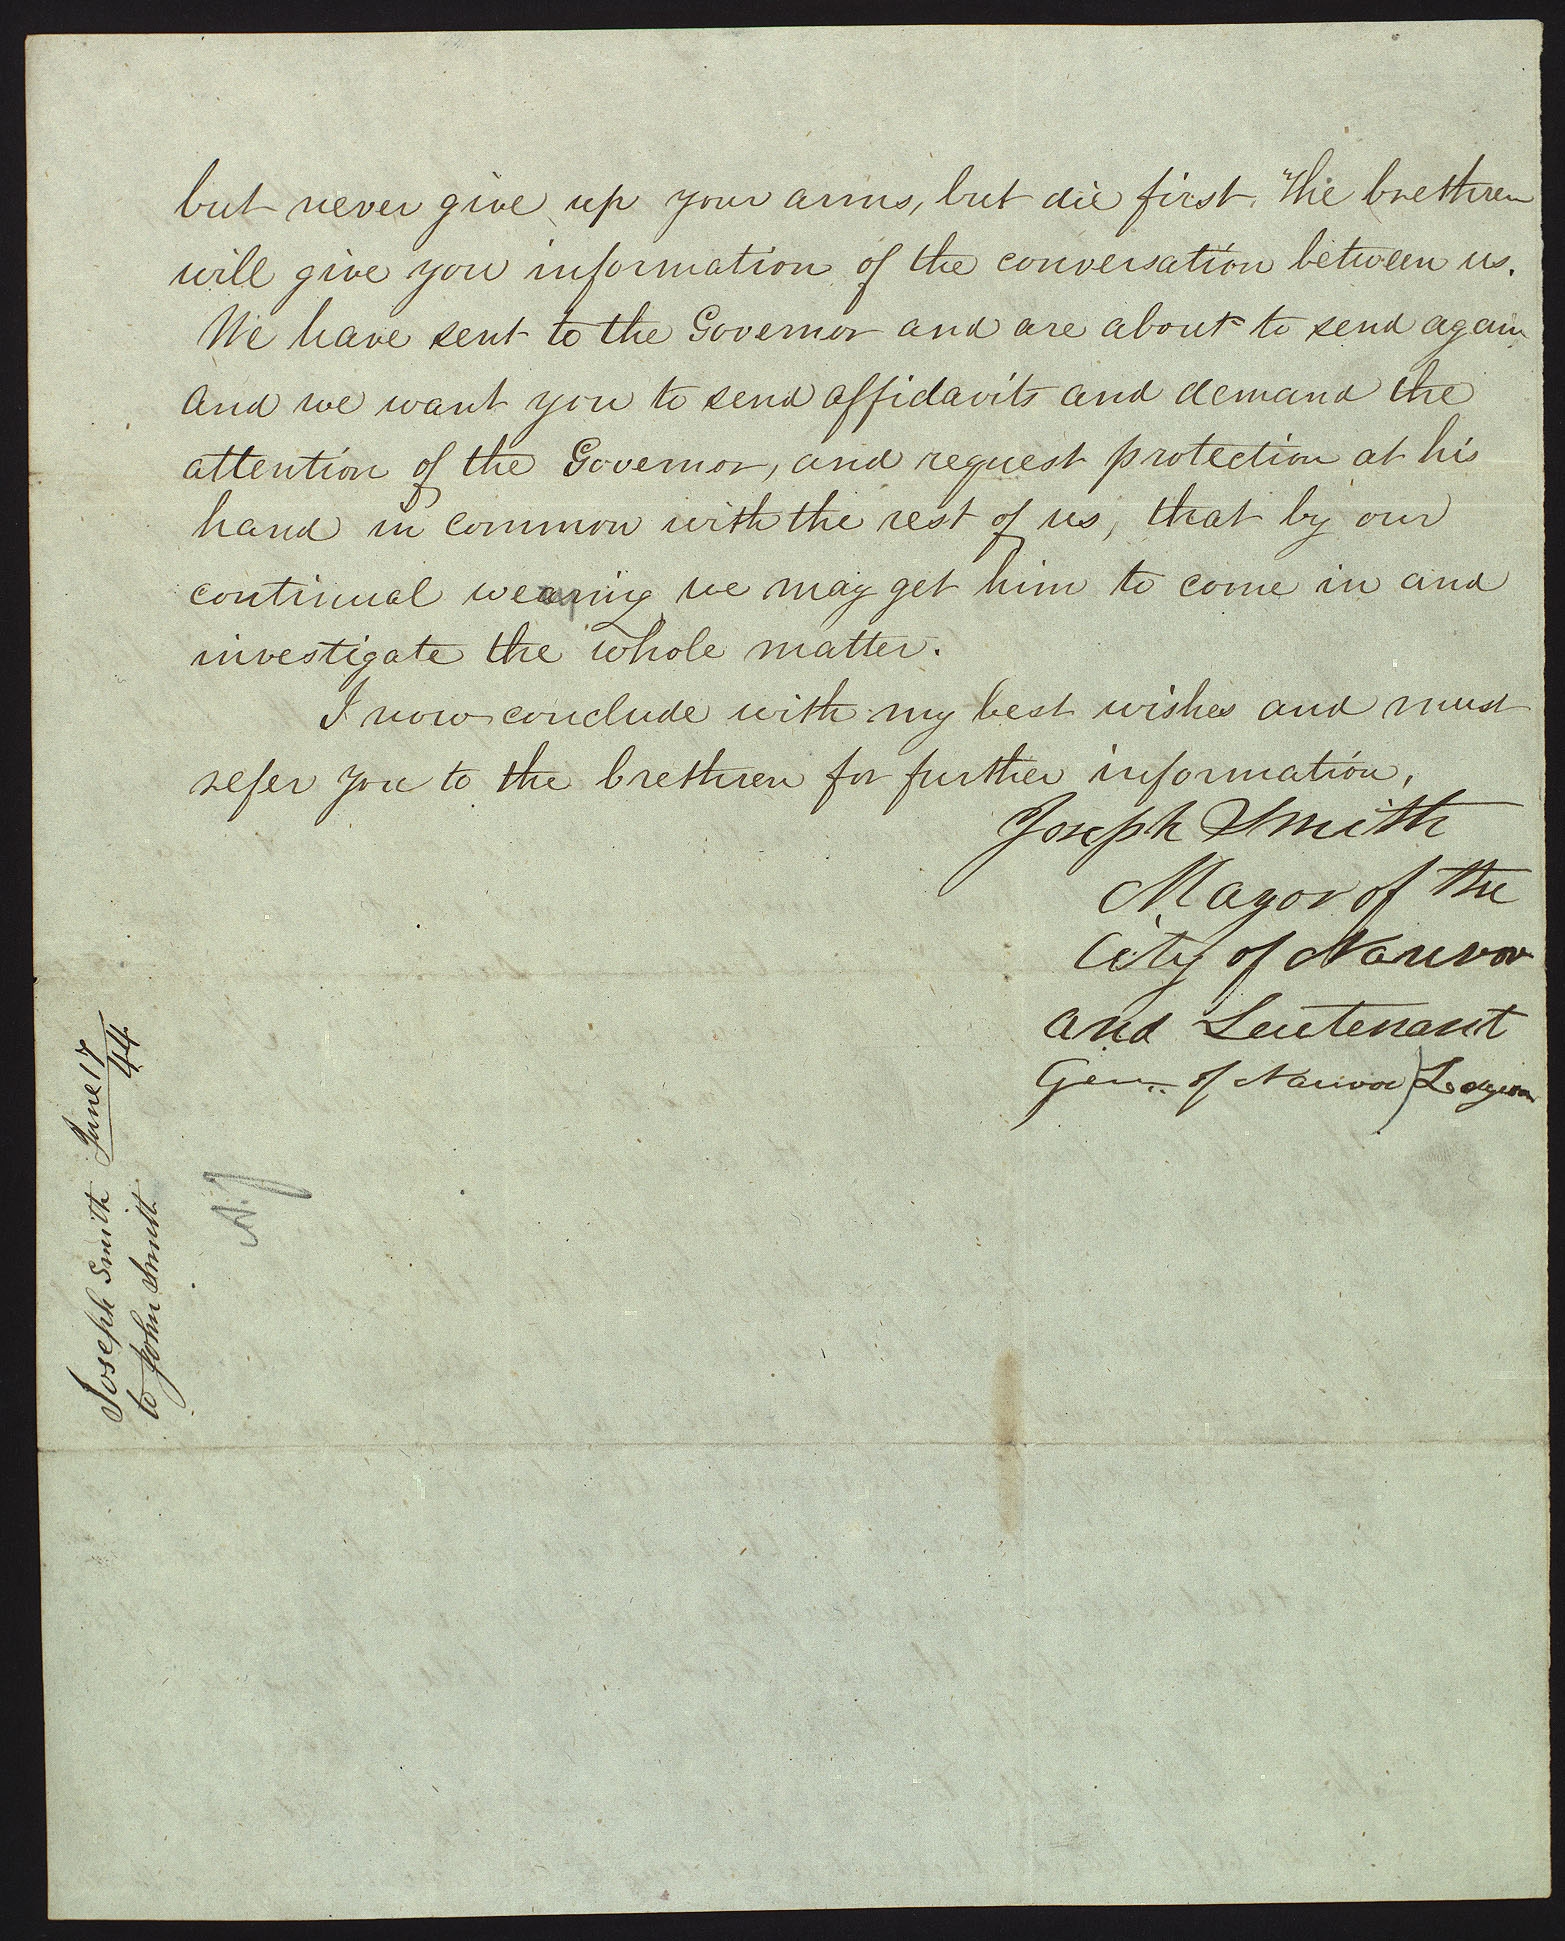 but never give up your arms, but die first. The brethren
will give you information of the conversation between us.
We have sent to the Governor and are about to send again
and we want you to send affidavits and demand the
attention of the Governor, and request protection at his
hand in common with the rest of us, that by our
continual wearing we may get him to come in and
investigate the whole matter.
I now conclude with my best wishes and must
refer you to the brethren for further information,
Joseph Smith
Mayor of the
City of Nauvoo
and Leutenant
Gen. of Nauvoo Legion
Joseph Smith June 17/44
to John Smith